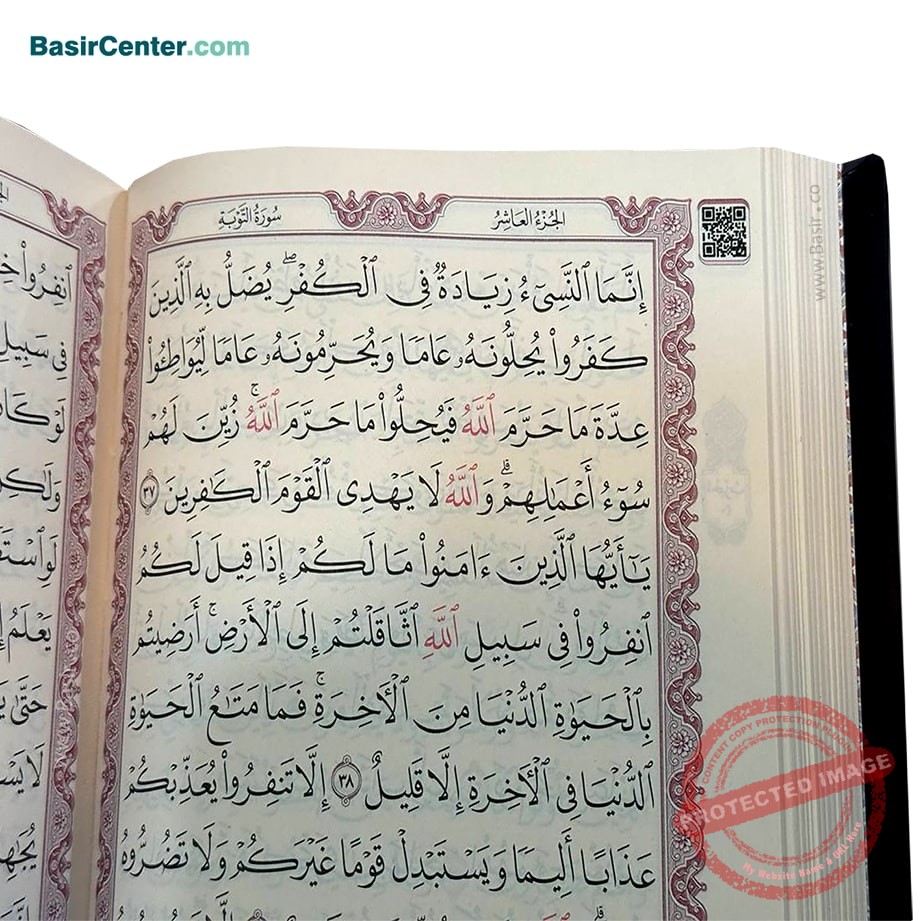 BasirCenter.com
الجُزْءُ العَاشِرُ
سُورَةُ التَّوْبَةِ
إِنَّمَا ٱلنَّسِىٓءُ زِيَادَةٌ فِى ٱلْكُفْرِ ۖ يُضَلُّ بِهِ ٱلَّذِينَ
كَفَرُوا۟ يُحِلُّونَهُۥ عَامًا وَيُحَرِّمُونَهُۥ عَامًا لِّيُوَاطِـُٔوا۟
عِدَّةَ مَا حَرَّمَ ٱللَّهُ فَيُحِلُّوا۟ مَا حَرَّمَ ٱللَّهُ ۚ زُيِّنَ لَهُمْ
سُوٓءُ أَعْمَـٰلِهِمْ ۗ وَٱللَّهُ لَا يَهْدِى ٱلْقَوْمَ ٱلْكَـٰفِرِينَ ٣٧
يَـٰٓأَيُّهَا ٱلَّذِينَ ءَامَنُوا۟ مَا لَكُمْ إِذَا قِيلَ لَكُمُ
ٱنفِرُوا۟ فِى سَبِيلِ ٱللَّهِ ٱثَّاقَلْتُمْ إِلَى ٱلْأَرْضِ ۚ أَرَضِيتُم
بِٱلْحَيَوٰةِ ٱلدُّنْيَا مِنَ ٱلْـَٔاخِرَةِ ۚ فَمَا مَتَـٰعُ ٱلْحَيَوٰةِ
ٱلدُّنْيَا فِى ٱلْـَٔاخِرَةِ إِلَّا قَلِيلٌ ٣٨ إِلَّا تَنفِرُوا۟ يُعَذِّبْكُمْ
عَذَابًا أَلِيمًا وَيَسْتَبْدِلْ قَوْمًا غَيْرَكُمْ وَلَا تَضُرُّوهُ
www.Basir.co
ٱنفِرُوا۟
فِى سَبِيلِ
لَوْ كَانَ
وَلَـٰكِنۢ
يَعْلَمُ
حَتَّىٰ
CONTENT COPY PROTECTION PLUGIN
PROTECTED IMAGE
My Website Name & URL Here